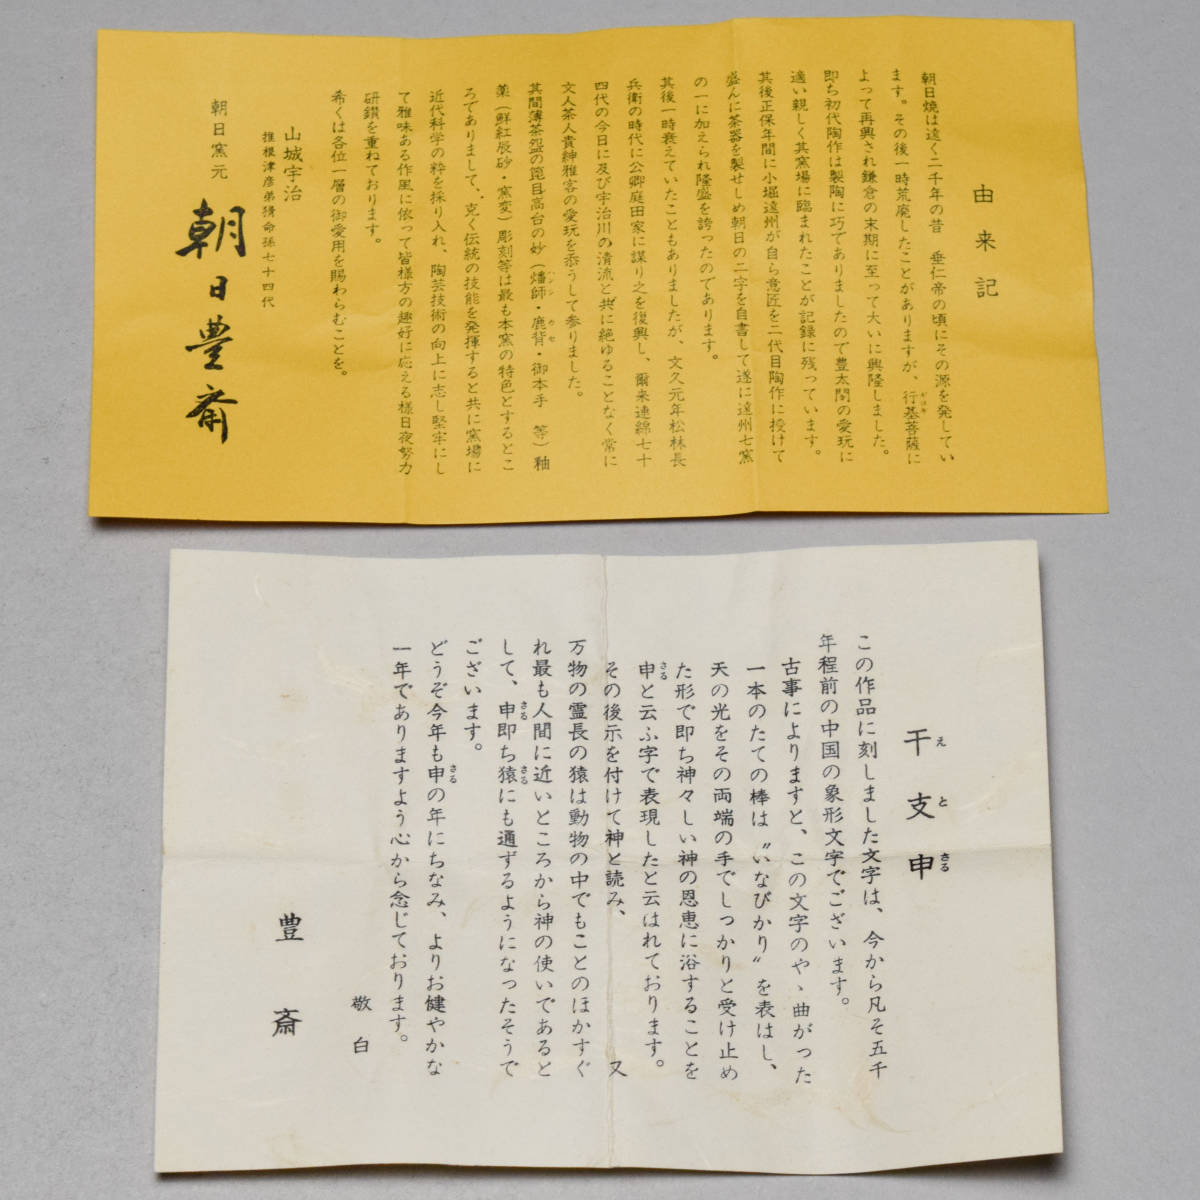 由来記
朝日焼は遠く二千年の昔　垂仁帝の頃にその源を発してい
ます。その後一時荒廃したことがありますが、行基菩薩に
ギヨキ
よって再興され鎌倉の末期に至って大いに興隆しました。
即ち初代陶作は製陶に巧でありましたので豊太閤の愛玩に
適い親しく其窯場に臨まれたことが記録に残っています。
其後正保年間に小堀遠州が自ら意匠を二代目陶作に授けて
盛んに茶器を製せしめ朝日の二字を自書して遂に遠州七窯
の一に加えられ隆盛を誇ったのであります。
其後一時衰えていたこともありましたが、文久元年松林長
兵衛の時代に公卿庭田家に謀り之を復興し、爾来連綿七十
四代の今日に及び宇治川の清流と共に絶ゆることなく常に
文人茶人貴紳雅客の愛玩を忝うして参りました。
其間薄茶盌の箆目高台の妙（燔師・鹿背・御本手　等）釉
ハンシ　カセ
薬（鮮紅辰砂・窯変）彫刻等は最も本窯の特色とするとこ
ろでありまして、克く伝統の技能を発揮すると共に窯場に
近代科学の粋を採り入れ、陶芸技術の向上に志し堅牢にし
て雅味ある作風に依って皆様方の趣好に応える様日夜努力
研鑽を重ねております。
希くは各位一層の御愛用を賜わらむことを。
山城宇治
推根津彦弟猜命孫七十四代
朝日窯元
朝日豊斎
干支申
えとさる
この作品に刻しました文字は、今から凡そ五千
年程前の中国の象形文字でございます。
古事によりますと、この文字のやゝ曲がった
一本のたての棒は〝いなびかり〟を表はし、
天の光をその両端の手でしっかりと受け止め
た形で即ち神々しい神の恩恵に浴することを
申と云ふ字で表現したと云はれております。
さる
その後示を付けて神と読み、　又
万物の霊長の猿は動物の中でもことのほかすぐ
れ最も人間に近いところから神の使いであると
して、申即ち猿にも通ずるようになったそうで
さる　さる
ございます。
どうぞ今年も申の年にちなみ、よりお健やかな
さる
一年でありますよう心から念じております。
敬白
豊斎